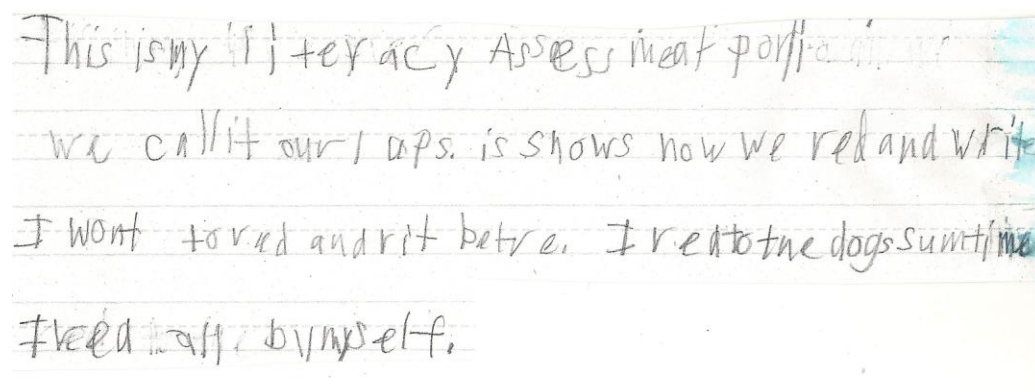 This is my literacy Assessment
we call it our laps. is shows how we red and write
I wont to red and rit betre. I red to the dogs sumtime
I reed all by myself.